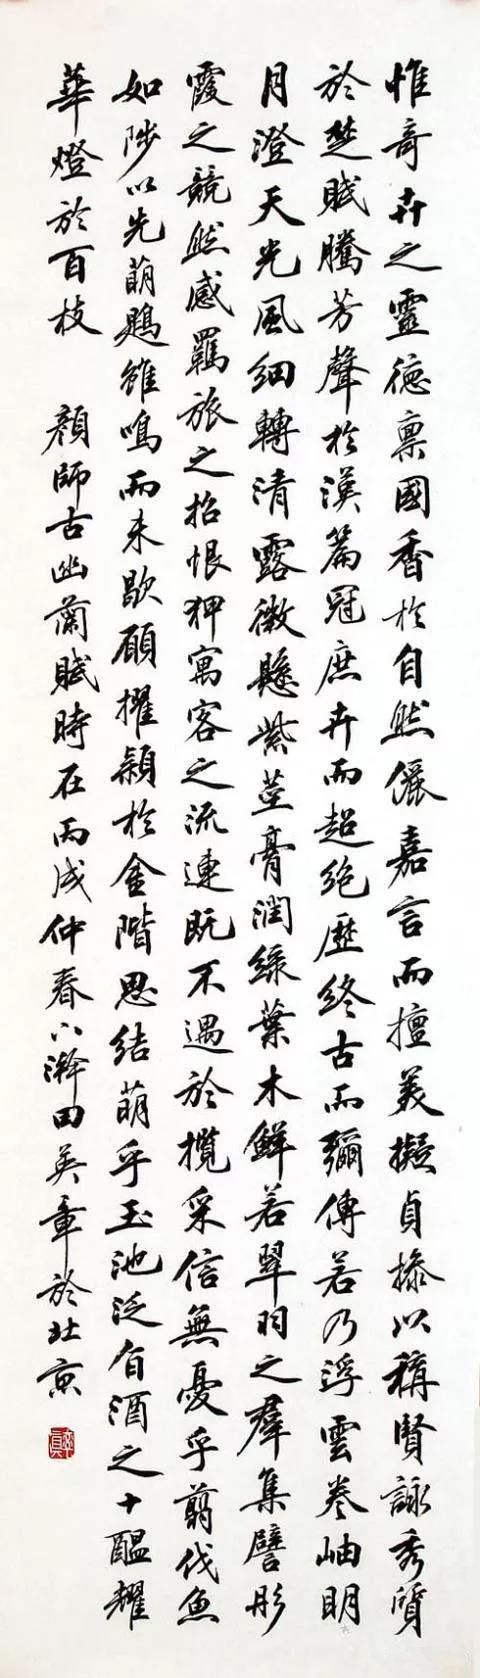 惟奇卉之靈德稟國香於自然儷嘉言而擅美擬貞操以稱賢詠秀質
於楚賦騰芳聲於漢篇冠庶卉而超絕歷終古而彌傳若乃浮雲卷岫明
月澄天光風細轉清露微懸紫莖膏潤綠葉木鮮若翠羽之羣集譬彤
霞之競然感羈旅之招恨狎寓客之流連既不遇於攬采信無憂乎翦伐魚
如陟以先萌鶗雖鳴而未歇願擢穎於金階思結萌乎玉池泛旨酒之十醞耀
華燈於百枝 顏師古幽蘭賦時在丙戌仲春下澣田英章於北京